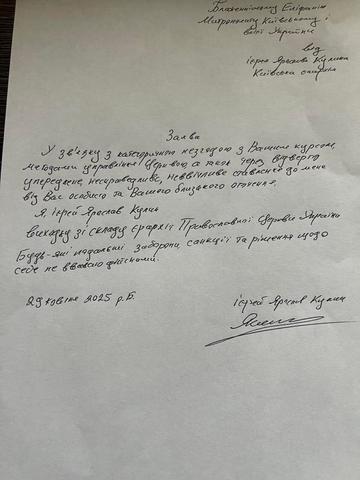 Блаженнішому Епіфанію
Митрополиту Київському і
всієї України
від
ієрея Ярослава Кулика
Київська єпархія
Заява
У зв'язку з категоричною незгодою з Вашим курсом,
методами управління Церквою а також через відверто
упереджене, несправедливе, неввічливе ставлення до мене
від Вас особисто та Вашого близького оточення,
Я ієрей Ярослав Кулик
виходжу зі складу єрархії Православної Церкви України
Будь-які подальші заборони, санкції та рішення щодо
себе не вважаю дійсними.
29 жовтня 2025 р.Б.
ієрей Ярослав Кулик